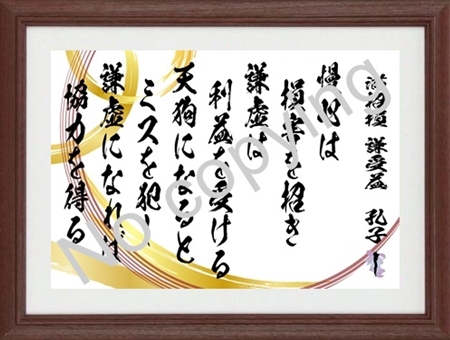 満招損 謙受益 孔子
慢心は
損害を招き
謙虚は
利益を受ける
天狗になると
ミスを犯し
謙虚になれば
協力を得る
No copying